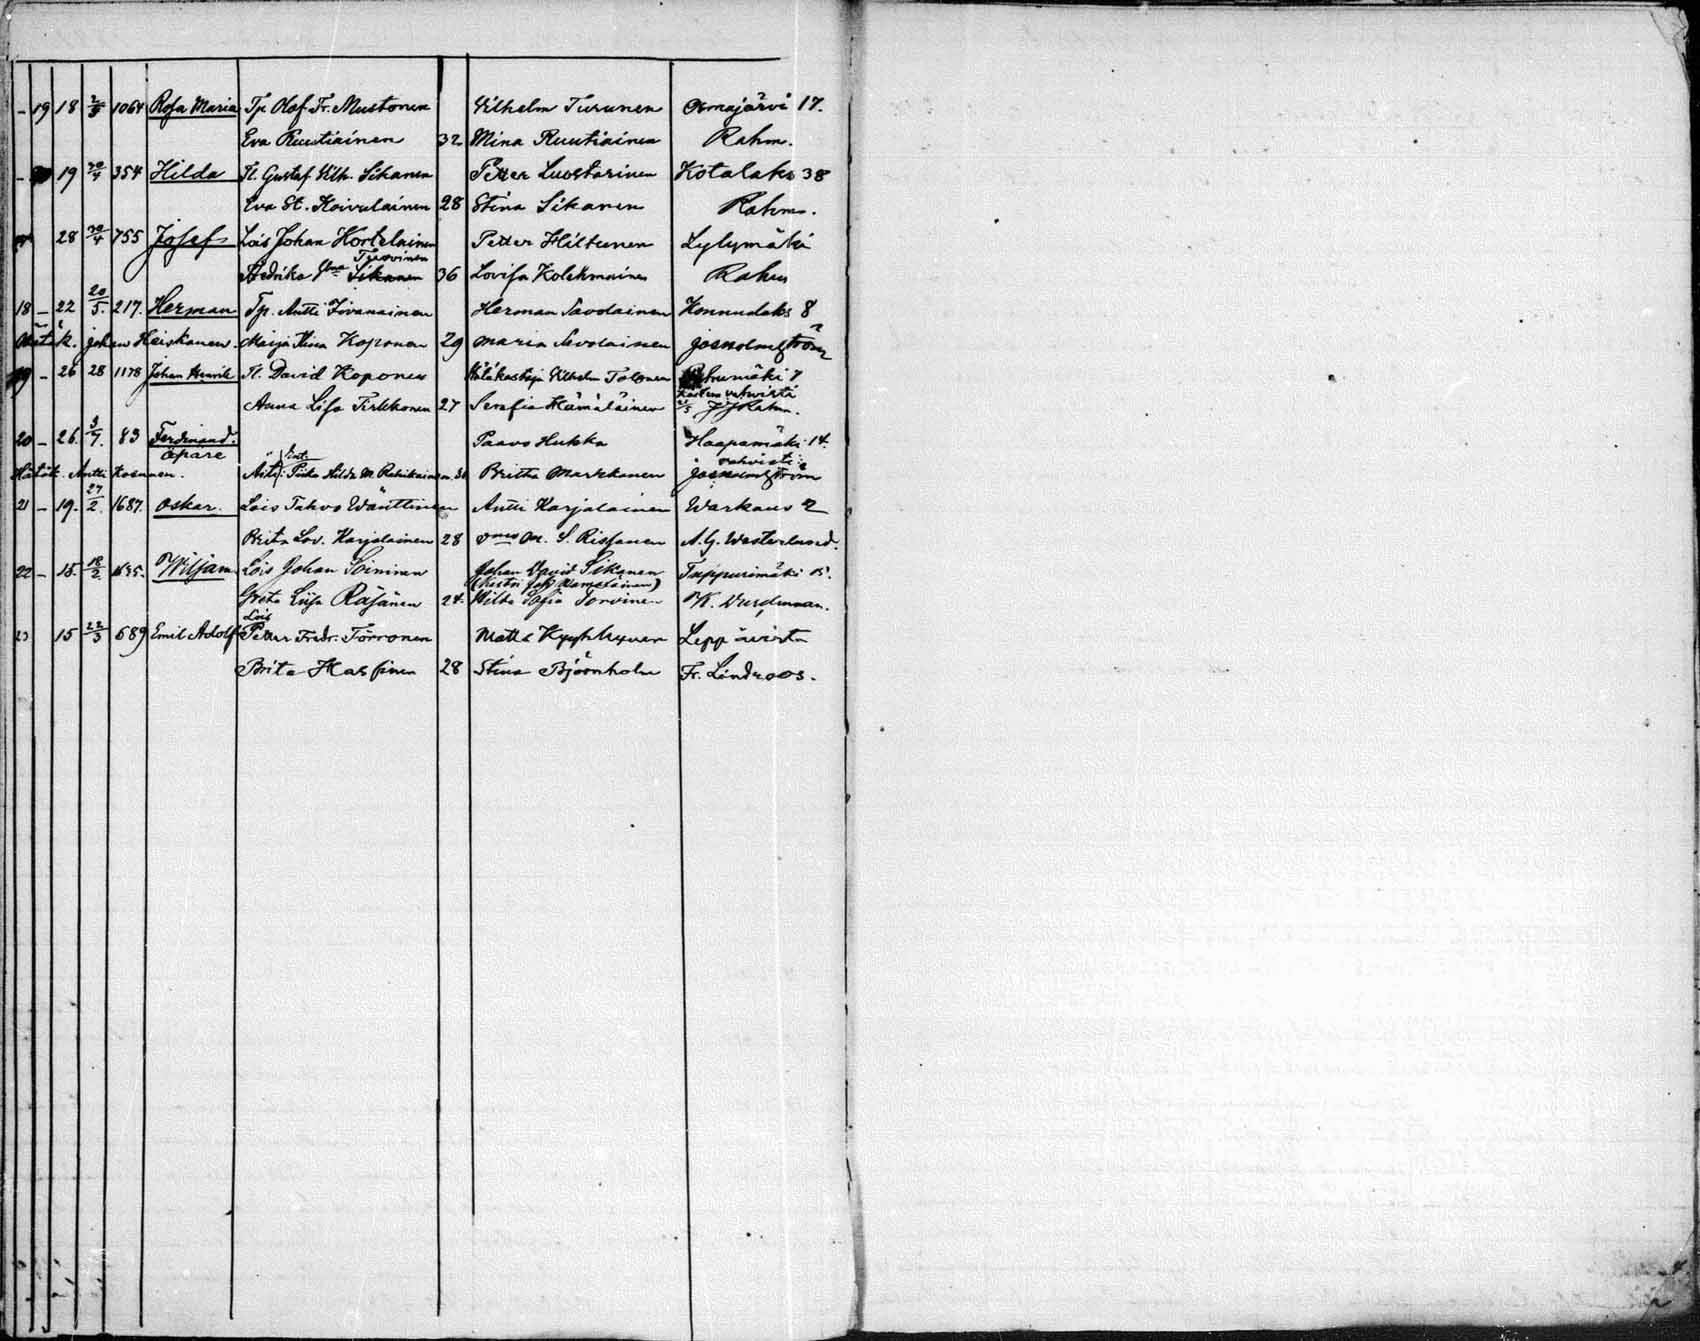 - 19 18 2/3 1064 Rosa Maria Tp Olof Fr. Mustonen Vilhelm Turunen Osmajärvi 17.
Eva Ruutiainen 32 Mina Ruutiainen Rahm.
- 19 20/4 354 Hilda Il. Gustaf Vilh. Sikanen Petter Luostarinen Kotalaks 38
Eva St. Koivulainen 28 Stina Sikanen Rahm.
28 20/4 755 Josef Lois Johan Hortelainen Petter Hiltunen Lylymäki
Tiervinen
Fredrika Sikanen 36 Lovisa Kolehmainen Rahm
18 - 22 20/5. 217. Herman Tp. Antti Iivanainen Herman Savolainen Konnudaks 8
Hätäk. Johan Heiskanen. Maija Stina Koponen 29 Maria Savolainen Jos. Holmström
19 - 26 28 1178 Johan Henrik Il. David Koponen Hätäkastaja Vilhelm Tolonen 7
vahvisti
Anna Lisa Tirkkonen 27 Serafia Hämäläinen Rahm.
20 - 26. 3/7. 83 Ferdinand. Paavo Hukka Haapamäki 14.
äpare vahvisti:
Hätäk. Antti Kosunen. Äiti: Piika Hilda M. Rahikainen Britta Markkanen Jos. Holmström
21 - 19. 27/2. 1687. Oskar. Lois Tahvo Wänttinen Antti Karjalainen Warkaus 2
Brita Lov. Karjalainen 28 S. Rissanen A. G. Westerlund.
22 - 15. 18/2. 1635. Wiljam Lois Johan Soininen Johan David Sikanen Tuppurimäki 15.
Greta Liisa Räsänen 24. Hilda Sofia Torvinen K.
Lois
23 15 22/3 689 Emil Adolf Petter Fredr. Törrönen Matts Kyyhkynen Leppävirta
Brita Hassinen 28 Stina Björnholm Fr. Lindroos.